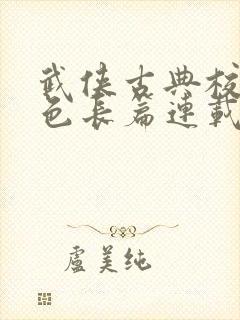 武侠古典校
色长篇連載
盧美纯